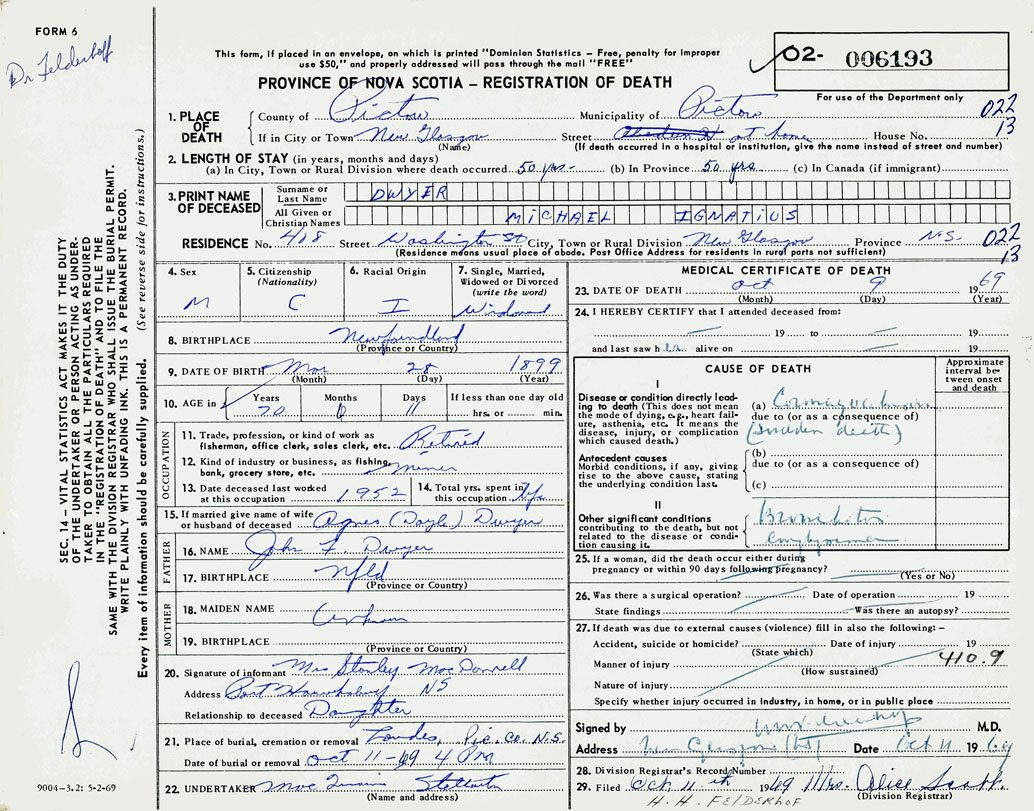 FORM 6
Dr Felderhof
This form, if placed in an envelope, on which is printed "Dominion Statistics – Free, penalty for improper
use $50," and properly addressed will pass through the mail "FREE"
PROVINCE OF NOVA SCOTIA – REGISTRATION OF DEATH
02- 006193
For use of the Department only
022
13
1. PLACE OF DEATH
County of Pictou Municipality of Pictou
If in City or Town New Glasgow Street at home House No.
(Name) (If death occurred in a hospital or institution, give the name instead of street and number)
2. LENGTH OF STAY (in years, months and days)
(a) In City, Town or Rural Division where death occurred 50 yrs. (b) In Province 50 yrs. (c) In Canada (if immigrant)
3. PRINT NAME OF DECEASED
Surname or Last Name DWYER
All Given or Christian Names MICHAEL IGNATIUS
RESIDENCE No. 418 Street Washington St City, Town or Rural Division New Glasgow Province N.S. 022
(Residence means usual place of abode. Post Office Address for residents in rural parts not sufficient) 13
4. Sex M
5. Citizenship (Nationality) C
6. Racial Origin I
7. Single, Married, Widowed or Divorced (write the word) Widowed
8. BIRTHPLACE Newfoundland
(Province or Country)
9. DATE OF BIRTH Mar 28 1899
(Month) (Day) (Year)
10. AGE in Years 70 Months 6 Days 11 If less than one day old
hrs. or min.
OCCUPATION
11. Trade, profession, or kind of work as
fisherman, office clerk, sales clerk, etc. Retired
12. Kind of industry or business, as fishing,
bank, grocery store, etc. miner
13. Date deceased last worked
at this occupation 1952
14. Total yrs. spent in
this occupation life
15. If married give name of wife
or husband of deceased Agnes (Doyle) Dwyer
FATHER
16. NAME John F. Dwyer
17. BIRTHPLACE Nfld
(Province or Country)
MOTHER
18. MAIDEN NAME
19. BIRTHPLACE
(Province or Country)
20. Signature of informant Mrs Stanley MacDonnell
Address Port Hawkesbury NS
Relationship to deceased Daughter
21. Place of burial, cremation or removal Lourdes, Pic. Co. N.S.
Date of burial or removal Oct 11-69 4 PM
22. UNDERTAKER Stellarton
(Name and address)
MEDICAL CERTIFICATE OF DEATH
23. DATE OF DEATH Oct 9 1969
(Month) (Day) (Year)
24. I HEREBY CERTIFY that I attended deceased from:
19 to 19
and last saw h alive on 19
CAUSE OF DEATH
Approximate interval between onset and death
I
Disease or condition directly leading to death (This does not mean the mode of dying, e.g., heart failure, asthenia, etc. It means the disease, injury, or complication which caused death.)
(a) Coronary
due to (or as a consequence of)
(sudden death)
Antecedent causes
Morbid conditions, if any, giving rise to the above cause, stating the underlying condition last.
(b)
due to (or as a consequence of)
(c)
II
Other significant conditions
contributing to the death, but not related to the disease or condition causing it.
Bronchitis
emphysema
25. If a woman, did the death occur either during
pregnancy or within 90 days following pregnancy?
(Yes or No)
26. Was there a surgical operation? Date of operation 19
State findings Was there an autopsy?
27. If death was due to external causes (violence) fill in also the following: –
Accident, suicide or homicide? Date of injury 19
(State which)
410.9
Manner of injury
(How sustained)
Nature of injury
Specify whether injury occurred in Industry, in home, or in public place
Signed by M.D.
Address New Glasgow Date Oct 11 1969
28. Division Registrar's Record Number
29. Filed Oct. 11th 1969 Mrs. Alice
(Division Registrar)
H. H. FELDERHOF
SEC. 14 – VITAL STATISTICS ACT MAKES IT THE DUTY
OF THE UNDERTAKER OR PERSON ACTING AS UNDER-
TAKER TO OBTAIN ALL THE PARTICULARS REQUIRED
IN THE "REGISTRATION OF DEATH" AND TO FILE THE
SAME WITH THE DIVISION REGISTRAR WHO SHALL ISSUE THE BURIAL PERMIT.
WRITE PLAINLY WITH UNFADING INK. THIS IS A PERMANENT RECORD.
Every item of information should be carefully supplied. (See reverse side for instructions.)
9004-3.2: 5-2-69